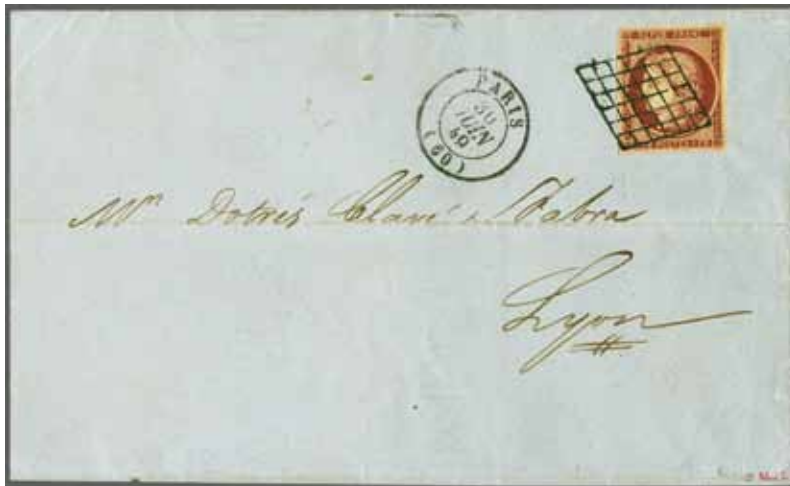 PARIS
30
JUIN
49
(60)
Mrs Dotrés Clavé & Fabra
Lyon